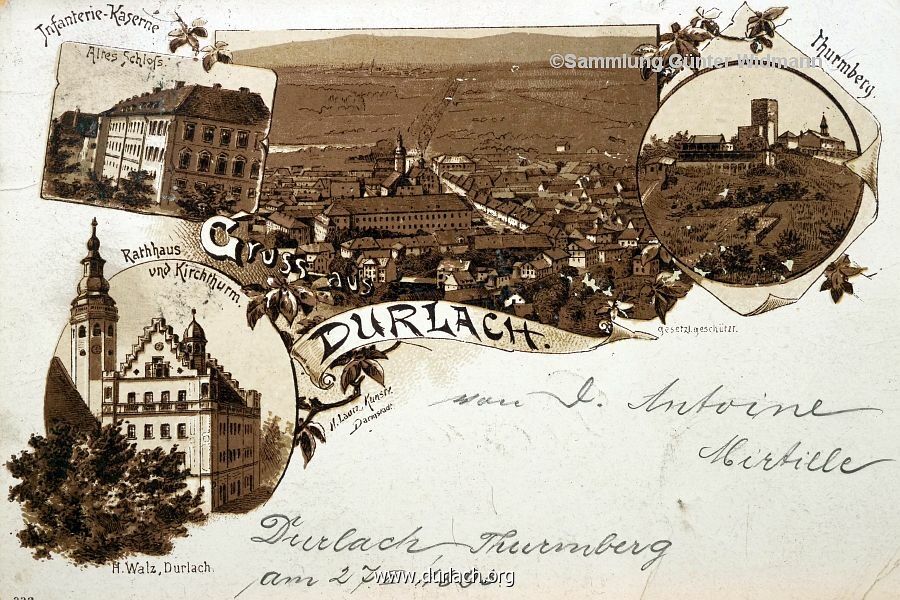 Infanterie-Kaserne
Altes Schloss.
©Sammlung Günter Widmann
Thurmberg.
Rathhaus
und Kirchthurm.
Gruss aus
DURLACH.
gesetzl. geschützt.
Kunstv.
Darmstadt
von d. Antoine
Mirtille
H. Walz, Durlach.
Durlach, Thurmberg
am 27
www.durlach.org